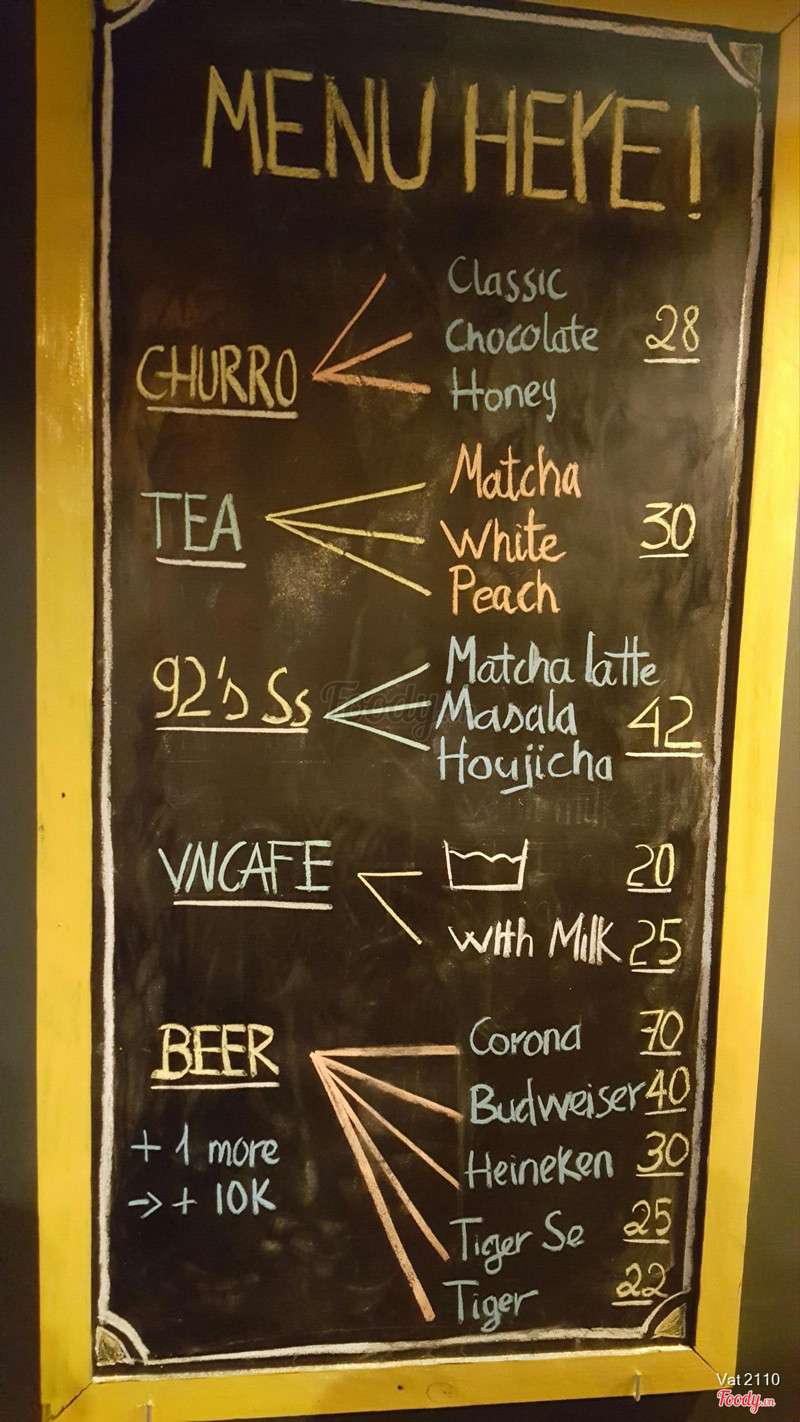 MENU HERE!
CHURRO
Classic
Chocolate 28
Honey
TEA
Matcha
White 30
Peach
92's Ss
Matcha latte
Masala 42
Houjicha
VNCAFE
20
With Milk 25
BEER
Corona 70
Budweiser 40
+ 1 more
→ + 10K
Heineken 30
Tiger Se 25
Tiger 22
Foody
Vat2110
Foody.vn